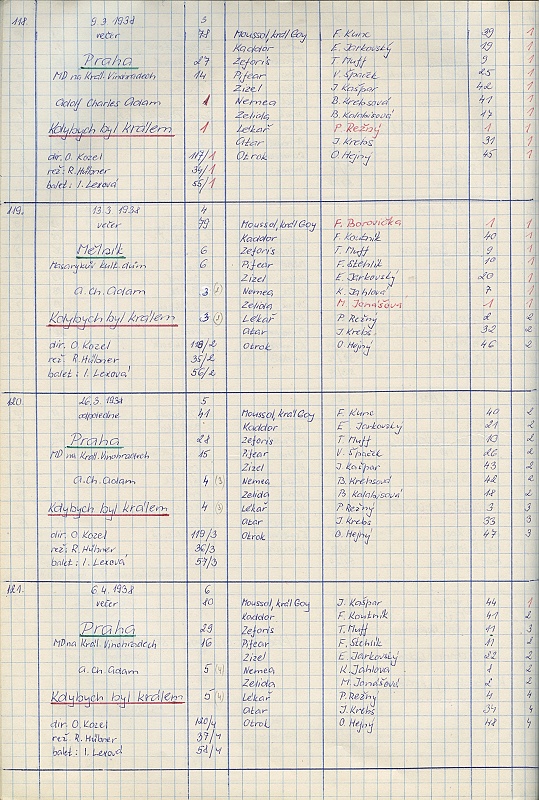 118. 9.3.1938 3
večer 78 Moussol, král Goy F. Kunc 39 1
Kaddor E. Jarkovský 19 1
Praha 27 Zeforis T. Muff 9 1
MD na Král. Vinohradech 14 Pifear V. Špaček 25 1
Zizel J. Kašpar 42 1
Adolf Charles Adam 1 Nemea B. Krebsová 41 1
Zelida B. Kalabisová 17 1
Kdybych byl králem 1 Lékař P. Režný 1 1
Atar J. Krebs 31 1
dir. O. Kozel 117/1 Otrok O. Hejný 45 1
rež: R. Hübner 34/1
balet: I. Lexová 55/1
119. 13.3.1938 4
večer 79 Moussol, král Goy F. Borovička 1 1
Kaddor F. Koutník 40 1
Mělník 6 Zeforis T. Muff 9 1
Masarykův kult. dům 6 Pifear F. Stehlík 10 1
Zizel E. Jarkovský 20 1
A. Ch. Adam 3 (3) Nemea K. Jahlová 7 1
Zelida M. Janášova 1 1
Kdybych byl králem 3 (3) Lékař P. Režný 2 2
Atar J. Krebs 32 2
dir. O. Kozel 118/2 Otrok O. Hejný 46 2
rež: R. Hübner 35/2
balet: I. Lexová 56/2
120. 26.3.1938 5
odpoledne 41 Moussol, král Goy F. Kunc 40 2
Kaddor E. Jarkovský 21 2
Praha 28 Zeforis T. Muff 10 2
MD na Král. Vinohradech 15 Pifear V. Špaček 26 2
Zizel J. Kašpar 43 2
A. Ch. Adam 4 (3) Nemea B. Krebsová 42 2
Zelida B. Kalabisová 18 2
Kdybych byl králem 4 (3) Lékař P. Režný 3 3
Atar J. Krebs 33 3
dir. O. Kozel 119/3 Otrok O. Hejný 47 3
rež: R. Hübner 36/3
balet: I. Lexová 57/3
121. 6.4.1938 6
večer 80 Moussol, král Goy J. Kašpar 44 1
Kaddor F. Koutník 41 2
Praha 29 Zeforis T. Muff 11 3
MD na Král. Vinohradech 16 Pifear F. Stehlík 11 2
Zizel E. Jarkovský 22 2
A. Ch. Adam 5 (4) Nemea K. Jahlová 2
Zelida M. Janášová 2 2
Kdybych byl králem 5 (4) Lékař P. Režný 4 4
Atar J. Krebs 34 4
dir. O. Kozel 120/4 Otrok O. Hejný 48 4
rež: R. Hübner 37/4
balet: I. Lexová 58/4